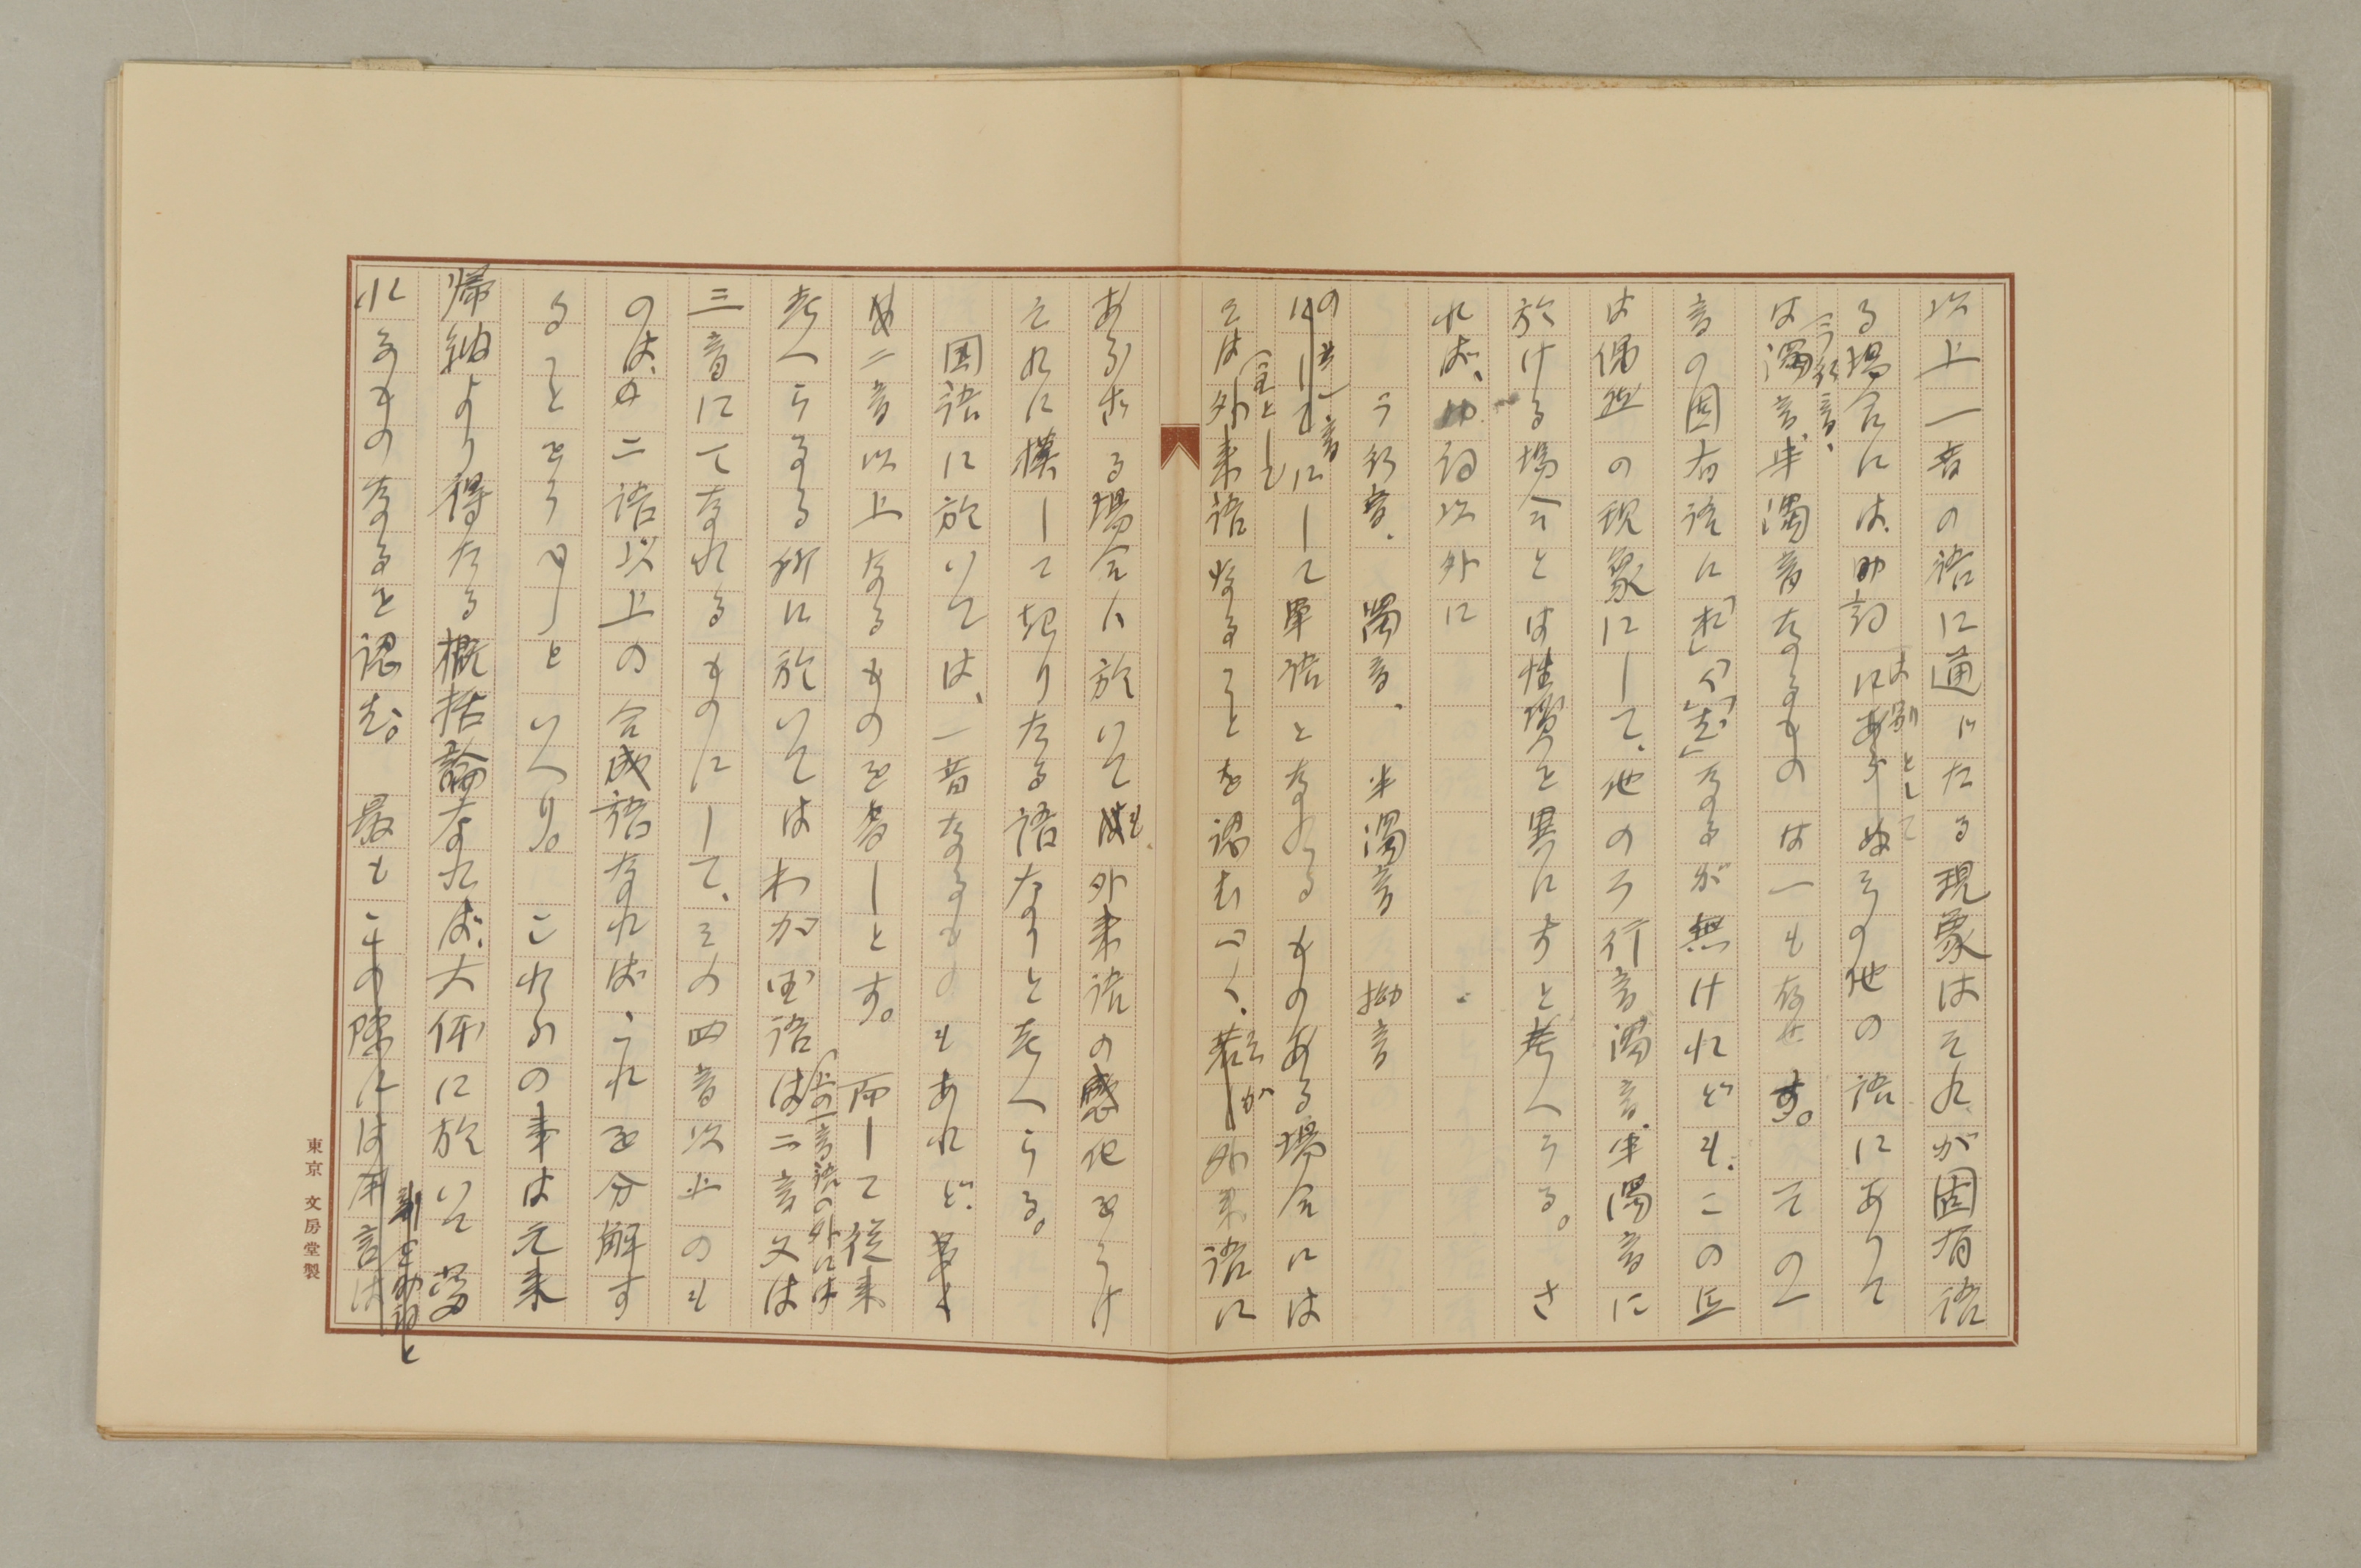 以上一音の語に通じたる現象はそれが固有語
る場合には、助詞は別としてその他の語にありて
は「ラ行音、濁音、半濁音なるものは一も存せす。その一
音の固有語に
は偶然の現象にして、他のラ行音濁音、半濁音に
於ける場合とは性質を異にすと考へらる。さ
れば、助詞以外に
ラ行音、濁音、半濁音 拗音
の第一音にして単語となれるものある場合には
そは(主として外来語なることを認むべく、若が外来語に
あらざる場合に於いても、外来語の感化をうけ
それに模して起りたる語なりと考へらる。
国語に於いては、一音なるものもあれど、
二音以上なるものを多しとす。而して従来
考へらるる所に於いてはわが国語は(上の一音語の外には二音又は
三音にてなれるものにして、その四音以上のも
のは、二語以上の合成語なれば、これを分解す
ることをうべしといへり。これらの事は元来
帰納より得たる概括論なれば、大体に於いて
なるものなると認む。最もこの際には用言は
東京 文房堂製